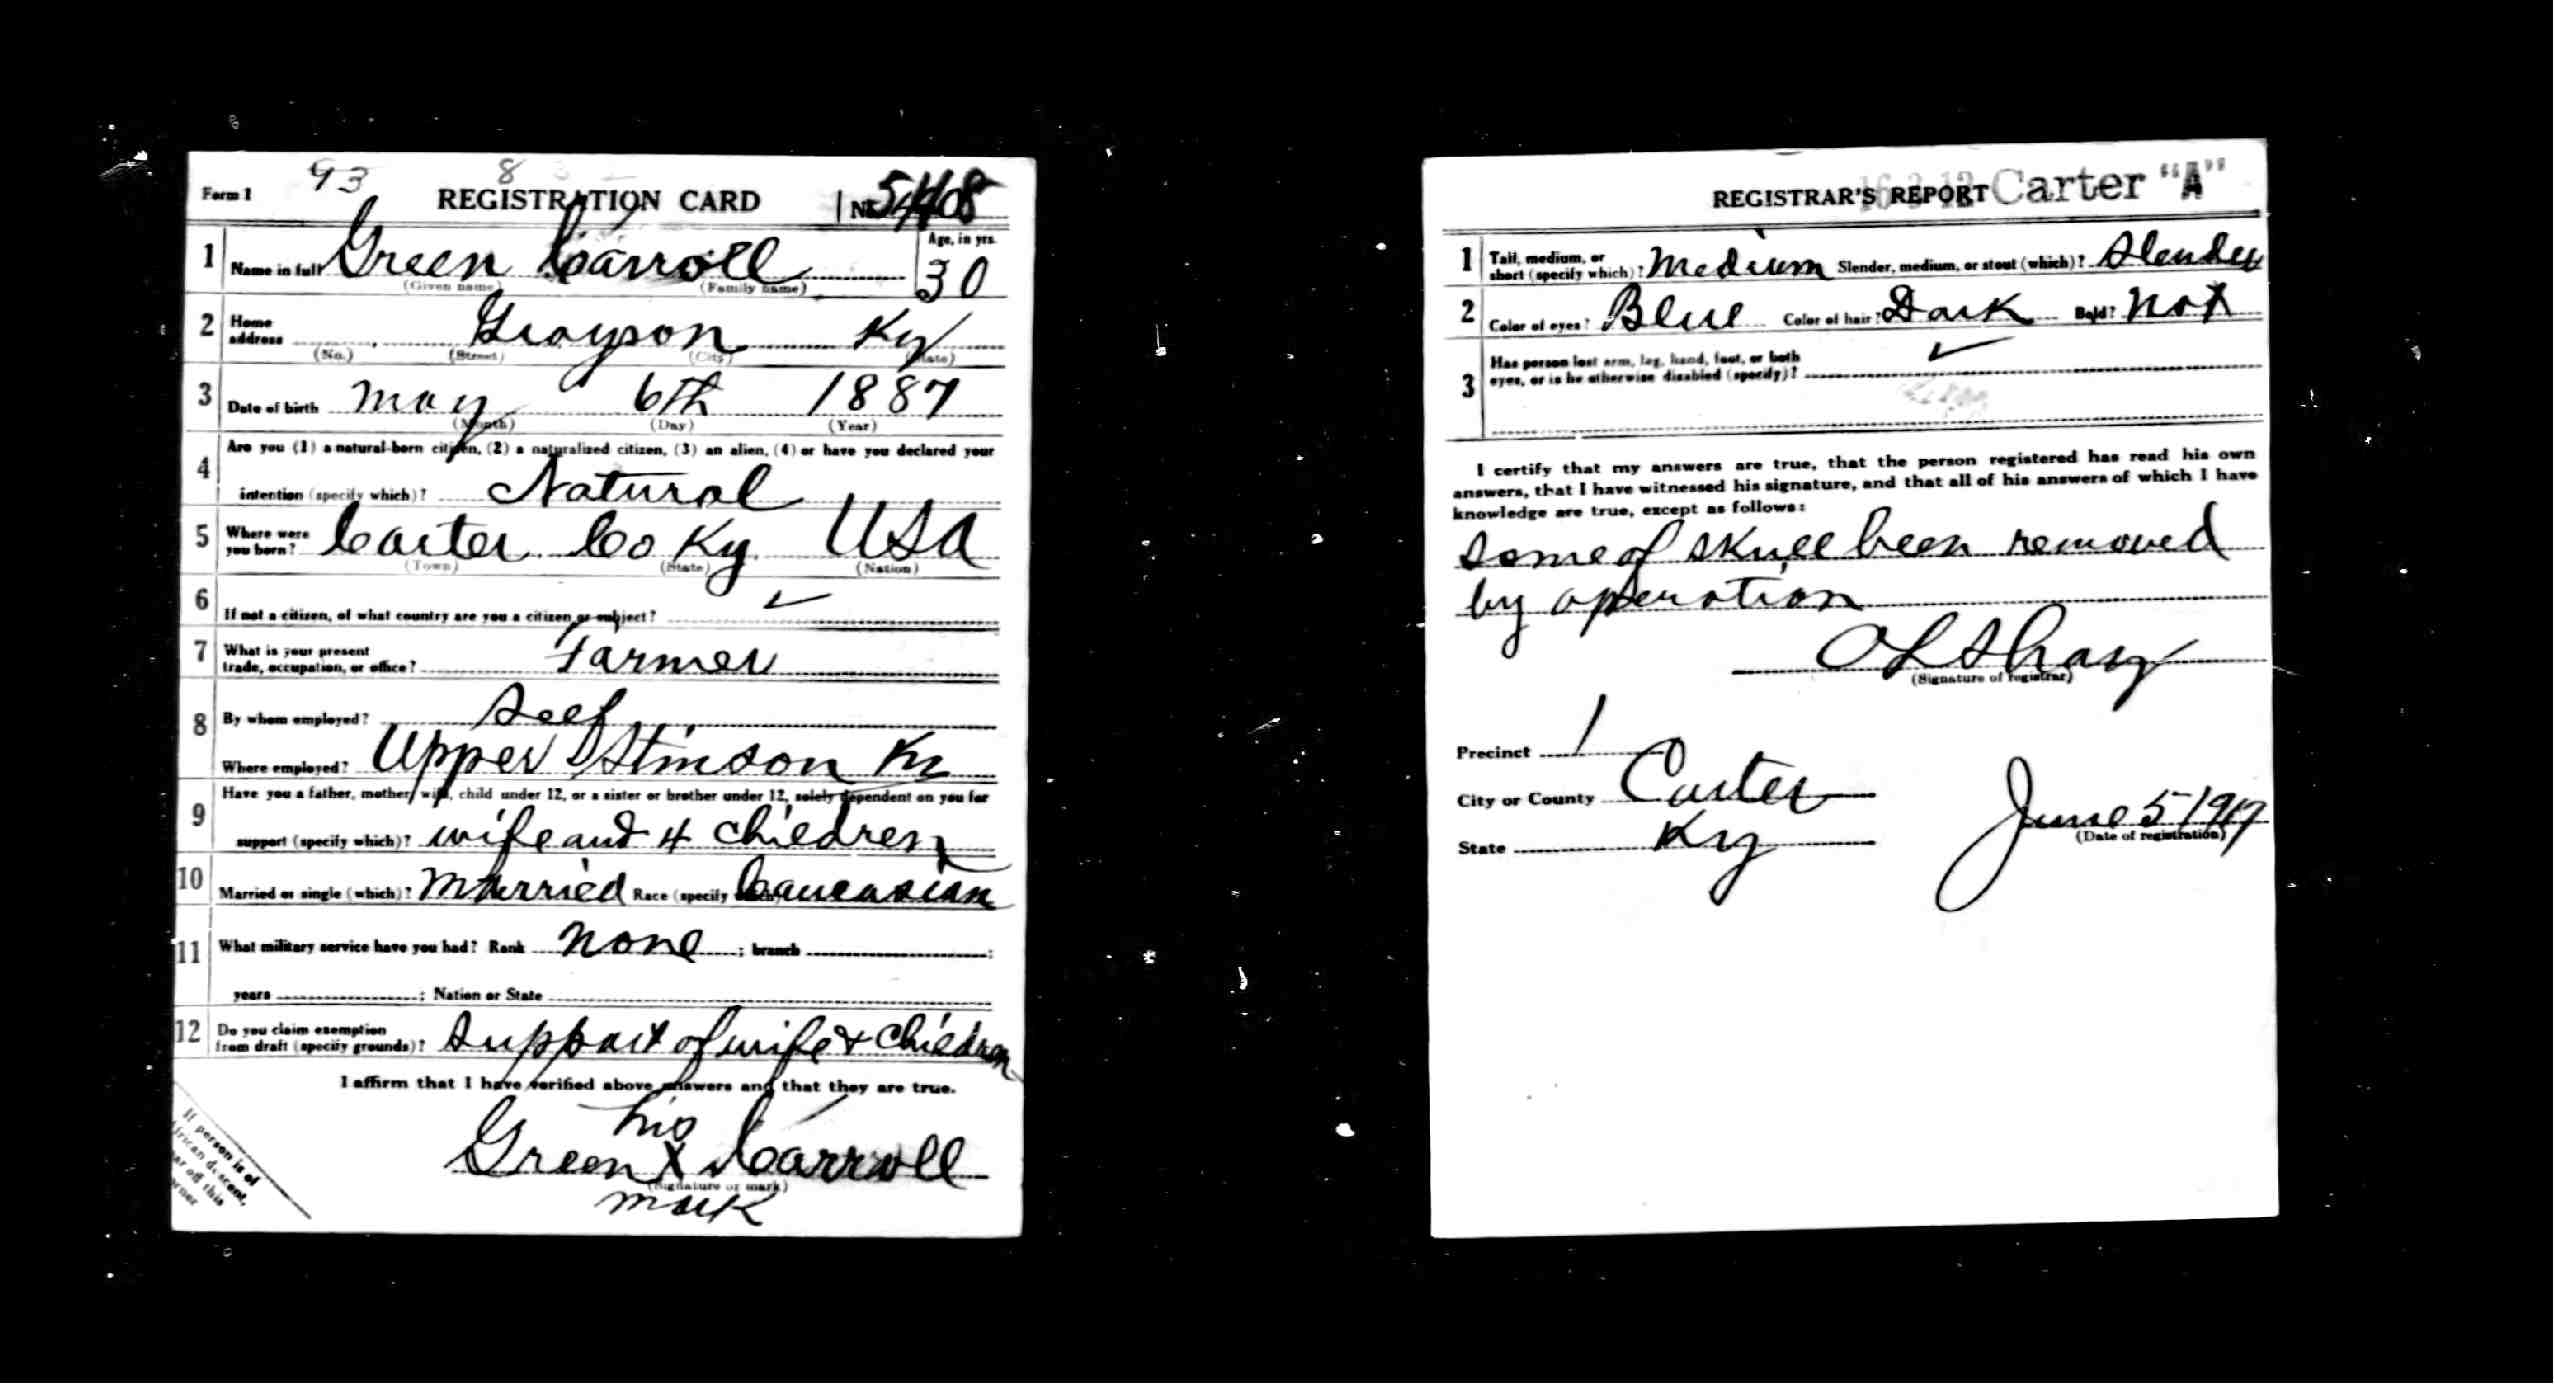 Form 1 93 8 REGISTRATION CARD No.
1 Name in full Green Carroll Age, in yrs. 30
(Given name) (Family name)
2 Home address Grayson Ky
(No.) (Street) (City) (State)
3 Date of birth May 6th 1887
(Month) (Day) (Year)
4 Are you (1) a natural-born citizen, (2) a naturalized citizen, (3) an alien, (4) or have you declared your
intention (specify which)? Natural
5 Where were you born? Carter Co Ky USA
(Town) (State) (Nation)
6 If not a citizen, of what country are you a citizen or subject? ✓
7 What is your present trade, occupation, or office? Farmer
8 By whom employed? Self
Where employed? Upper Stinson Ky
9 Have you a father, mother, wife, child under 12, or a sister or brother under 12, solely dependent on you for
support (specify which)? wife and 4 children
10 Married or single (which)? Married Race (specify which)? Caucasian
11 What military service have you had? Rank none ; branch ;
years ; Nation or State
12 Do you claim exemption from draft (specify grounds)? Support of wife & children
I affirm that I have verified above answers and that they are true.
his
Green X Carroll
(Signature or mark)
mark
If person is of
African descent,
tear off this
corner
REGISTRAR'S REPORT Carter "A"
1 Tall, medium, or short (specify which)? Medium Slender, medium, or stout (which)? Slender
2 Color of eyes? Blue Color of hair? Dark Bald? Not
3 Has person lost arm, leg, hand, foot, or both
eyes, or is he otherwise disabled (specify)? ✓
I certify that my answers are true, that the person registered has read his own
answers, that I have witnessed his signature, and that all of his answers of which I have
knowledge are true, except as follows:
some of skull been removed
by operation
(Signature of registrar)
Precinct 1
City or County Carter
State Ky
June 5 1917
(Date of registration)